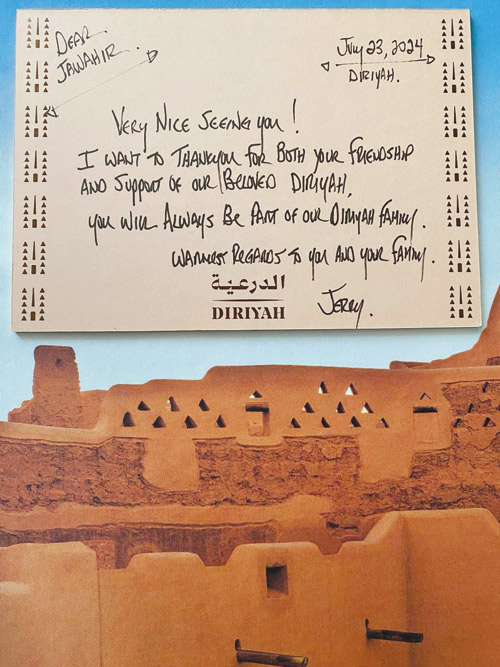 Dear
Jawahir.
July 23, 2024
Diriyah.
Very Nice Seeing you!
I want to Thank you for Both your Friendship
and Support of our Beloved Diriyah,
you will Always Be Part of our Diriyah Family.
Warmest Regards to you and your Family.
الدرعية
DIRIYAH
Jerry.